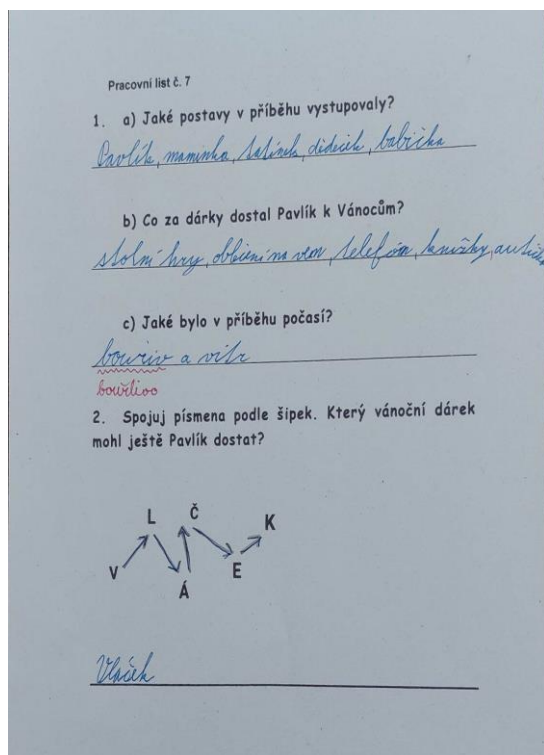 Pracovní list č. 7
1. a) Jaké postavy v příběhu vystupovaly?
Pavlík, maminka, tatínek, dědeček, babička
b) Co za dárky dostal Pavlík k Vánocům?
stolní hry, oblečení na ven, telefón, knížky,
c) Jaké bylo v příběhu počasí?
a vítr
bouřlivo
2. Spojuj písmena podle šipek. Který vánoční dárek
mohl ještě Pavlík dostat?
L Č K
V Á E
Vláček